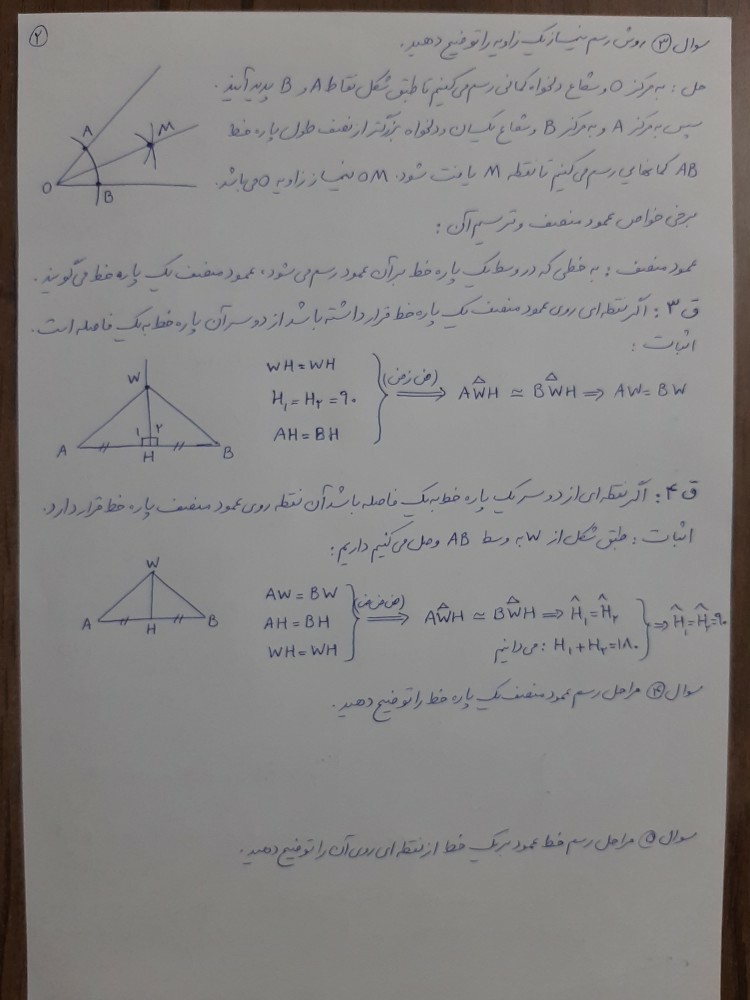 ۲
سوال ۳ روش رسم نیمساز یک زاویه را توضیح دهید.
حل : به مرکز O و شعاع دلخواه کمانی رسم می‌کنیم تا طبق شکل نقاط A و B پدید آیند.
سپس به مرکز A و به مرکز B و شعاع یکسان و دلخواه بزرگتر از نصف طول پاره خط
AB کمانهایی رسم می‌کنیم تا نقطه M یافت شود. OM نیمساز زاویه O می‌باشد.
A
M
O
B
برخی خواص عمود منصف و ترسیم آن :
عمود منصف : به خطی که در وسط یک پاره خط بر آن عمود رسم می‌شود، عمود منصف یک پاره خط می‌گویند.
ق ۳ : اگر نقطه‌ای روی عمود منصف یک پاره خط قرار داشته باشد از دو سر آن پاره خط به یک فاصله است.
اثبات :
WH = WH
H₁ = H₂ = ۹۰
AH = BH
(ض ز ض) ⟹ AŴH ≃ BŴH ⟹ AW = BW
W
۱ ۲
A H B
ق ۴ : اگر نقطه‌ای از دو سر یک پاره خط به یک فاصله باشد آن نقطه روی عمود منصف پاره خط قرار دارد.
اثبات : طبق شکل از W به وسط AB وصل می‌کنیم داریم :
AW = BW
AH = BH
WH = WH
(ض ض ض) ⟹ AŴH ≃ BŴH ⟹ Ĥ₁ = Ĥ₂
می‌دانیم : H₁ + H₂ = ۱۸۰
⟹ Ĥ₁ = Ĥ₂ = ۹۰
W
A H B
سوال ۴ مراحل رسم عمود منصف یک پاره خط را توضیح دهید.
سوال ۵ مراحل رسم خط عمود بر یک خط از نقطه ای روی آن را توضیح دهید.